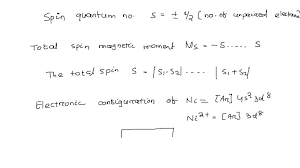 Spin quantum no. S = ± 1/2 (no. of unpaired electron
Total spin magnetic moment Ms = -S ..... S
The total spin S = |S₁-S₂| ..... |S₁+S₂|
Electronic configuration of Ni = [Ar] 4s² 3d⁸
Ni²⁺ = [Ar] 3d⁸